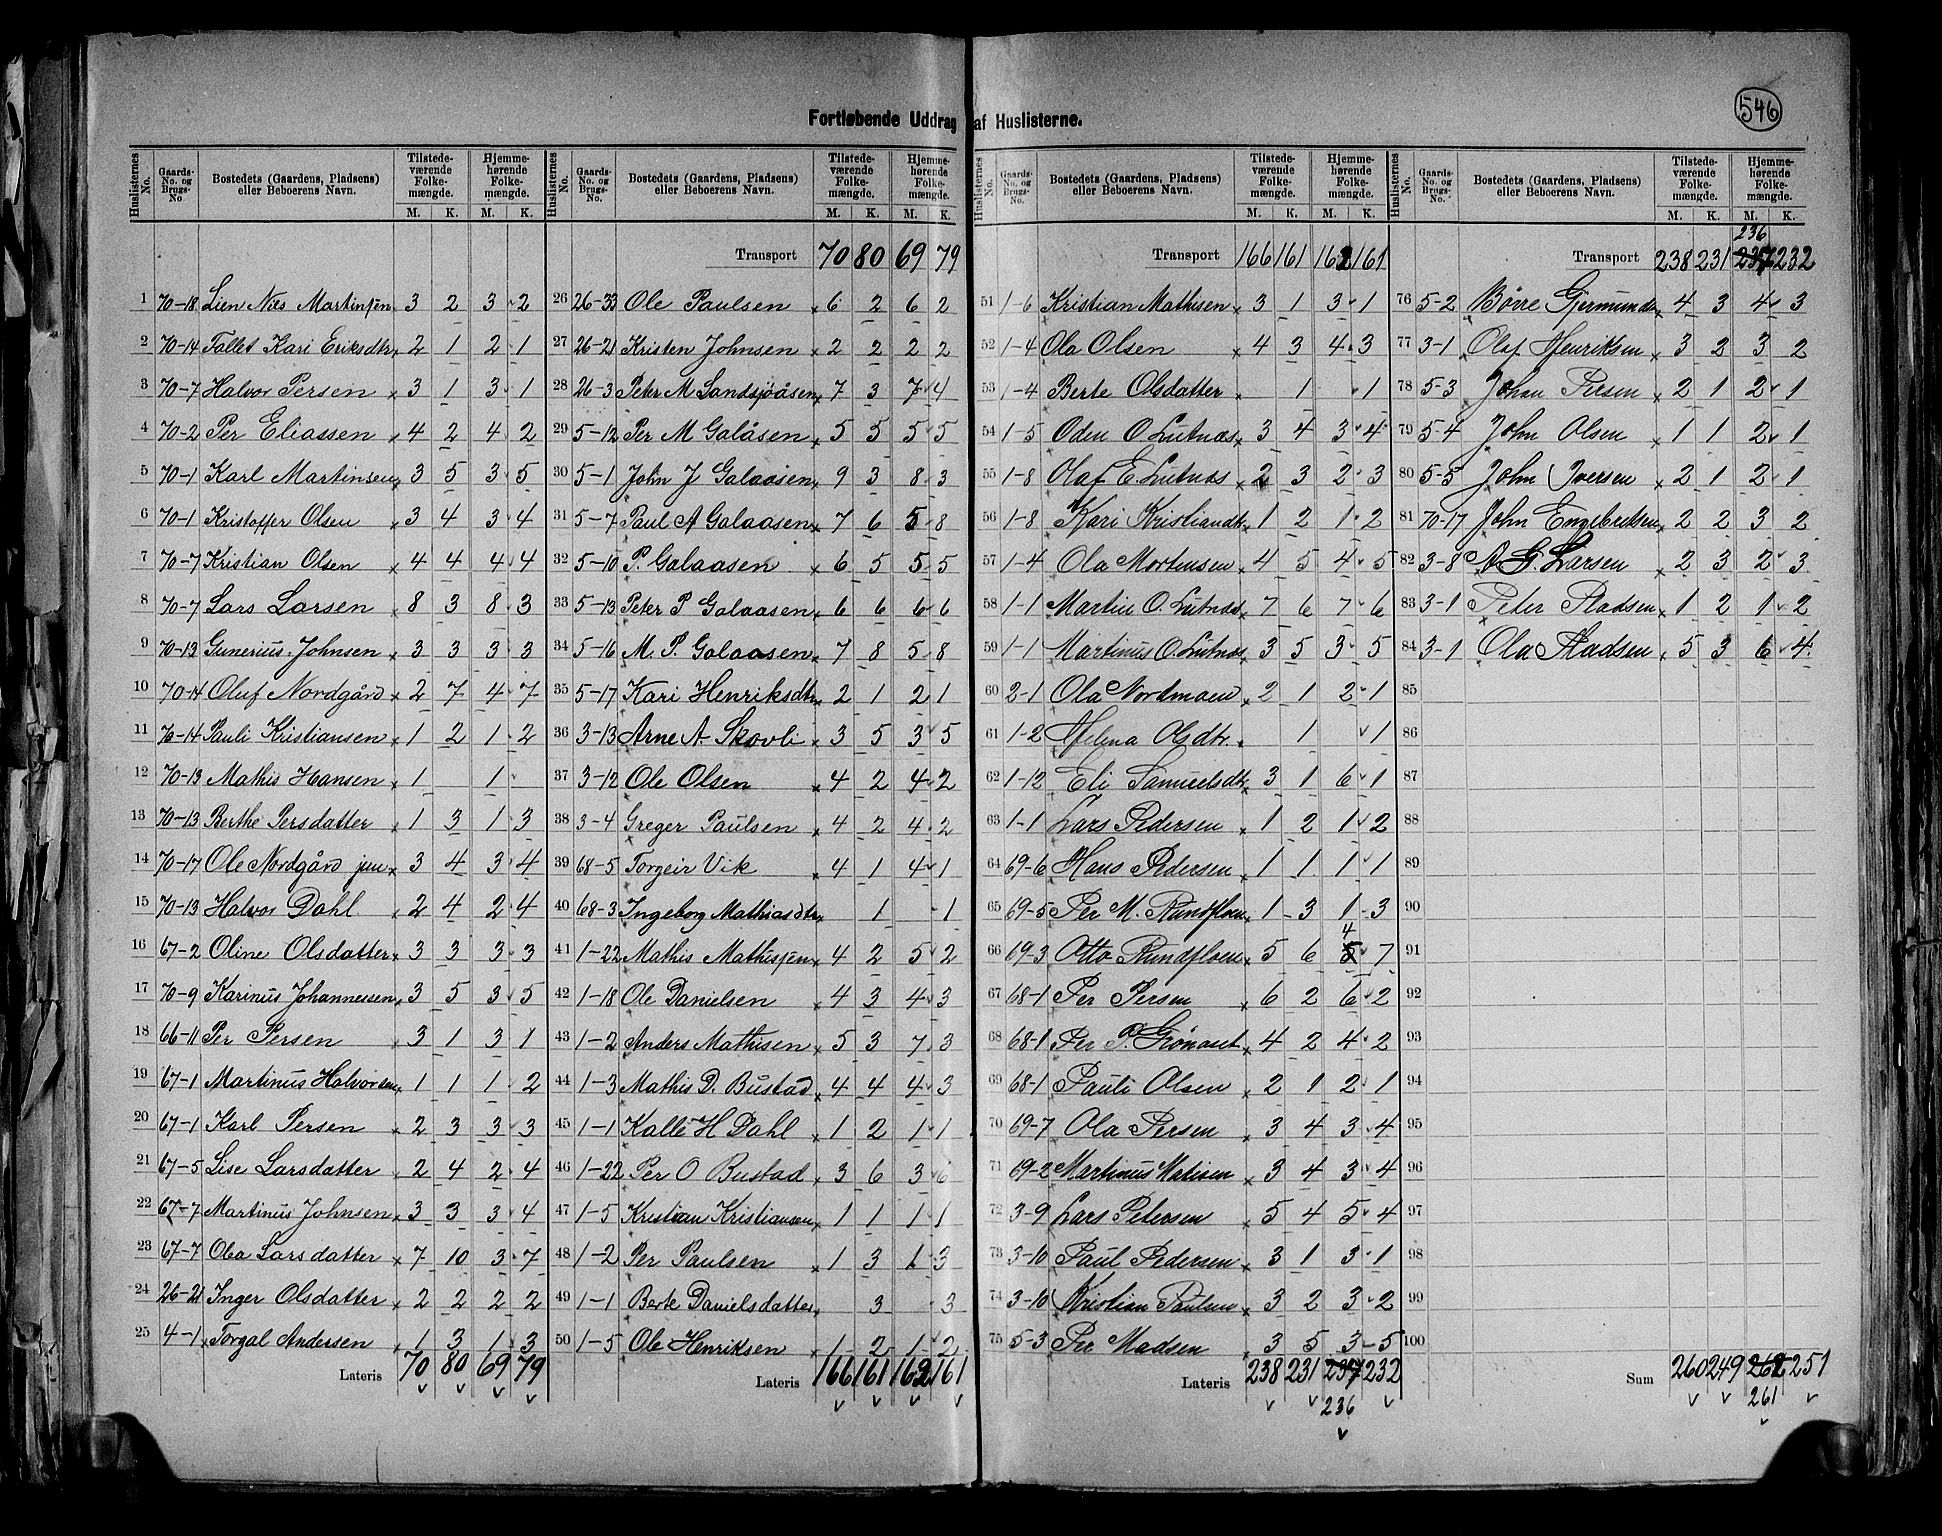 546
Fortløbende Uddrag af Huslisterne.
Huslisternes No. Gaards-No. og Brugs-No Bostedets (Gaardens, Pladsens) eller Beboerens Navn. Tilstedeværende Folkemængde. M. K. Hjemmehørende Folkemængde. M. K.
1 70-18 Lien Nils Martinsen 3 2 3 2
2 70-14 Tallet Kari Eriksdtr 2 1 2 1
3 70-7 Halvor Persen 3 1 3 1
4 70-2 Per Eliassen 4 2 4 2
5 70-1 Karl Martinsen 3 5 3 5
6 70-1 Kristoffer Olsen 3 4 3 4
7 70-7 Kristian Olsen 4 4 4 4
8 70-7 Lars Larsen 8 3 8 3
9 70-13 Gunerius Johnsen 3 3 3 3
10 70-14 Oluf Nordgård 2 7 4 7
11 70-14 Pauli Kristiansen 1 2 1 2
12 70-13 Mathis Hansen 1 1
13 70-13 Berthe Persdatter 1 3 1 3
14 70-17 Ole Nordgård jun 3 4 3 4
15 70-13 Halvor Dahl 2 4 2 4
16 67-2 Oline Olsdatter 3 3 3 3
17 70-9 Karinus Johannessen 3 5 3 5
18 66-11 Per Persen 3 1 3 1
19 67-1 Martinus Halvorsen 1 1 1 2
20 67-1 Karl Persen 2 3 3 3
21 67-5 Lise Larsdatter 2 4 2 4
22 67-7 Martinus Johnsen 3 3 3 4
23 67-7 Olea Larsdatter 7 10 3 7
24 26-21 Inger Olsdatter 2 2 2 2
25 4-1 Torgal Andersen 1 3 1 3
Lateris 70 80 69 79
Huslisternes No. Gaards-No. og Brugs-No. Bostedets (Gaardens, Pladsens) eller Beboerens Navn. Tilstedeværende Folkemængde. M. K. Hjemmehørende Folkemængde. M. K.
Transport 70 80 69 79
26 26-33 Ole Paulsen 6 2 6 2
27 26-21 Kristen Johnsen 2 2 2 2
28 26-3 Peter M Landsjøåsen 7 3 7 4
29 5-12 Per M Galåsen 5 5 5 5
30 5-1 John J Galaasen 9 3 8 3
31 5-7 Paul A Galaasen 7 6 5 8
32 5-10 P. Galaasen 6 5 5 5
33 5-13 Peter P Galaasen 6 6 6 6
34 5-16 M. P. Galaasen 7 8 5 8
35 5-17 Kari Henriksdtr 2 1 2 1
36 3-13 Arne A. Skovli 3 5 3 5
37 3-12 Ole Olsen 4 2 4 2
38 3-4 Greger Paulsen 4 2 4 2
39 68-5 Torgeir Vik 4 1 4 1
40 68-3 Ingeborg Mathiasdtr 1 1
41 1-22 Mathis Mathisen 4 2 5 2
42 1-18 Ole Danielsen 4 3 4 3
43 1-2 Anders Mathisen 5 3 7 3
44 1-3 Mathis D. Bustad 4 4 4 3
45 1-1 Kalle H Dahl 1 2 1 1
46 1-22 Per O Bustad 3 6 3 6
47 1-5 Kristian Kristiansen 1 1 1 1
48 1-2 Per Paulsen 1 3 1 3
49 1-1 Berte Danielsdatter 3 3
50 1-5 Ole Henriksen 1 2 1 2
Lateris 166 161 162 161
Huslisternes No. Gaards-No. og Brugs-No. Bostedets (Gaardens, Pladsens) eller Beboerens Navn. Tilstedeværende Folkemængde. M. K. Hjemmehørende Folkemængde. M. K.
Transport 166 161 162 161
51 1-6 Kristian Mathisen 3 1 3 1
52 1-4 Ola Olsen 4 3 4 3
53 1-4 Berte Olsdatter 1 1
54 1-5 Oden O Lutnæs 3 4 3 4
55 1-8 Olaf E. Lutnæs 2 3 2 3
56 1-8 Kari Kristiandtr 1 2 1 2
57 1-4 Ola Mortensen 4 5 4 5
58 1-1 Martin O. Lutnæs 7 6 7 6
59 1-1 Martinus O. Lutnæs 3 5 3 5
60 2-1 Ola Nordmæn 2 1 2 1
61 1-2 Helena Olsdtr. 1 1
62 1-12 Eli Samuelsdtr 3 1 6 1
63 1-1 Lars Pedersen 1 2 1 2
64 69-6 Hans Pedersen 1 1 1 1
65 69-5 Per M. Rundfloen 1 3 1 3
66 69-3 Otto Rundfloen 5 6 5 4 7
67 68-1 Per Persen 6 2 6 2
68 68-1 Per P. Grønæset 4 2 4 2
69 68-1 Pauli Olsen 2 1 2 1
70 69-7 Ola Persen 3 4 3 4
71 69-2 Martinus Matisen 3 4 3 4
72 3-9 Lars Petersen 5 4 5 4
73 3-10 Paul Pedersen 3 1 3 1
74 3-10 Kristian Paulsen 3 2 3 2
75 5-3 Per Madsen 3 5 3 5
Lateris 238 231 237 232
236
Huslisternes No. Gaards-No. og Brugs-No. Bostedets (Gaardens, Pladsens) eller Beboerens Navn. Tilstedeværende Folkemængde. M. K. Hjemmehørende Folkemængde. M. K.
236
Transport 238 231 237 232
76 5-2 Børre Gjermunds 4 3 4 3
77 3-1 Olaf Henriksen 3 2 3 2
78 5-3 Johan Persen 2 1 2 1
79 5-4 John Olsen 1 1 2 1
80 5-5 John Iversen 2 1 2 1
81 70-17 John Engebretsen 2 2 3 2
82 3-8 A. G. Larsen 2 3 2 3
83 3-1 Peter Pladsen 1 2 1 2
84 3-1 Ola Pladsen 5 3 6 4
85
86
87
88
89
90
91
92
93
94
95
96
97
98
99
100
Sum 260 249 262 251
261